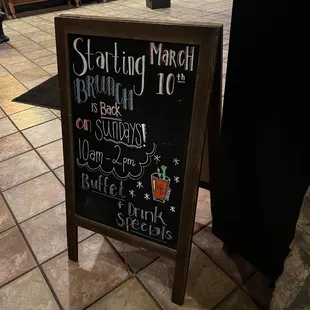 Starting March
10th
BRUNCH
is Back
on SUNDAYS!
10am - 2pm
Buffet
+ Drink
Specials